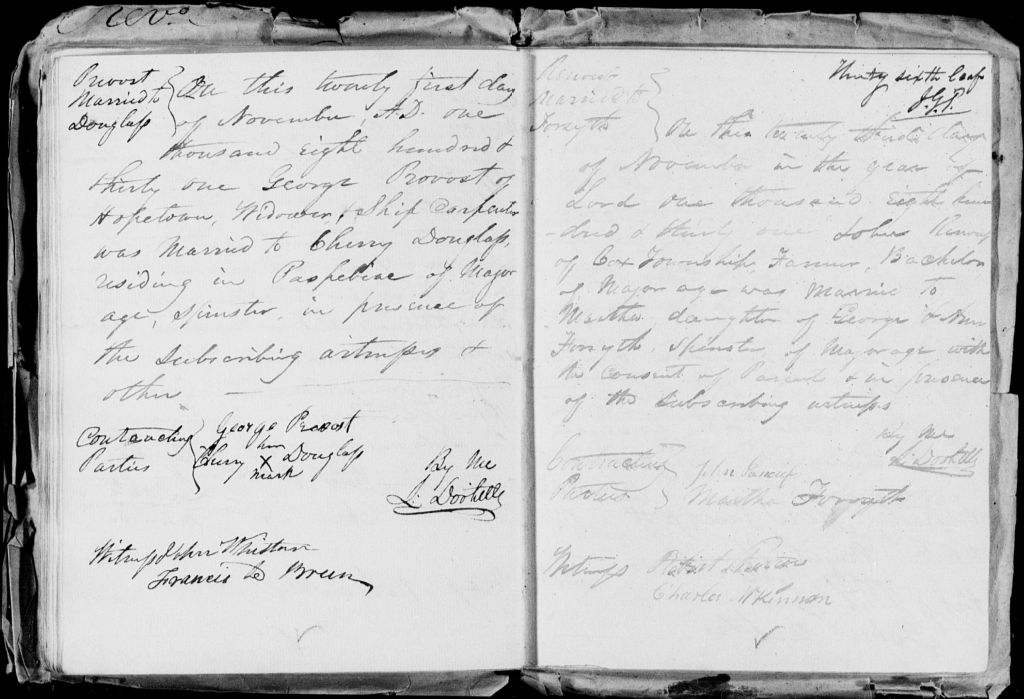 Provost
Married to
Douglass
On this twenty first day
of November, A.D. one
thousand eight hundred &
thirty one George Provost of
Hopetown, Widower, & Ship Carpenter
was Married to Cherry Douglass,
residing in Paspebiac of Major
age, Spinster, in presence of
the Subscribing witness &
other
Contracting
Parties
George Provost
her
Cherry X Douglass
mark
By Me
Witness John
Francis Le
Thirty sixth leaf
J.G.T.
Married to
Forsyth
On this twenty
of November in the year of
Lord one thousand eight hun
-dred & thirty one John
of Cox Township, Farmer, Bachelor
of Major age was Married to
Martha daughter of George & Ann
Forsyth, Spinster, of Major age with
the consent of Parents & in presence
of the Subscribing witness
By Me
Contracting
Parties
John
Martha Forsyth
Witness
Charles McKinnon